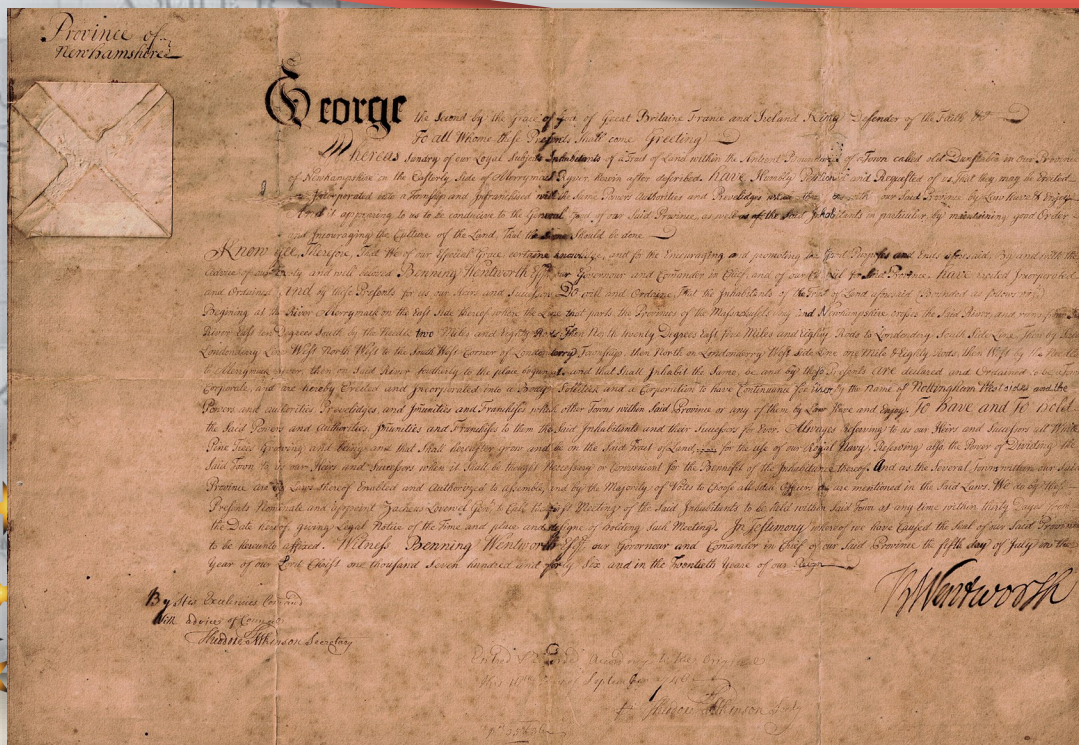 Province of
Newhamshire
George the Second by the Grace of God of Great Britaine France and Ireland King Defender of the Faith &c
To all Whome these Presents Shall come Greeting
Whereas Sundry of our Loyal Subjects Inhabitants of a Tract of Land within the Antient Boundaries of a Town called old Dunstable in our Province
of Newhampshire on the Easterly Side of Merrymack River, herein after described Have Humbly Petitioned and Requested of us That they may be Erected
and Incorporated into a Township and Infranchised with the Same Powers Authorities and Previledges which other within our Said Province by Law have & Enjoy
And it appearing to us to be conducive to the General good of our Said Province, as well as of the Said Inhabitants in particular, by maintaining good Order
and Encouraging the Culture of the Land, That the Same Should be done
Know Yee, Therefore, That We of our Especial Grace certaine knowledge, and for the Encouraging and promoting the Good Purposes and Ends aforesaid, By and with the
Advice of our Trusty and well beloved Benning Wentworth Esqr our Governour and Comander in Chief, and of our Council for Said Province Have Erected Incorporated
and Ordained And by these Presents for us our Heirs and Successors Do will and Ordaine That the Inhabitants of the Tract of Land aforesaid (Bounded as follows viz)
Begining at the River Merrymack on the East Side thereof where the Line that parts the Provinces of the Massachusetts Bay and Newhampshire crosses the Said River, and runs from Said
River East ten Degrees South by the Needle two Miles and Eighty Rods Then North twenty Degrees East five Miles and Eighty Rods to Londonderry South Side Line Then by Said
Londonderry Line West North West to the South West Corner of Londonderry Township then North on Londonderry West Side Line one Mile & Eighty Rods, then West by the Needle
to Merrymack River, then on Said River Southerly to the place begun at and that Shall Inhabit the Same, be and by these Presents Are declared and Ordained to be a Town
Corporate, and are hereby Erected and Incorporated into a Body Politick and a Corporation to have Continuance for Ever by the name of Nottingham West and the
Powers and authorities Previledges and Imunities and Franchises which other Towns within Said Province or any of them by Law Have and Enjoy To Have and To Hold
the Said Powers and Authorities Imunities and Franchises to them the Said Inhabitants and their Successors for Ever. Always Reserving to us our Heirs and Successors all White
Pine Trees Growing and being and that Shall hereafter grow and be on the Said Tract of Land for the use of our Royal Navy. Reserving also the Power of Dividing the
Said Town to us our Heirs and Successors when it Shall be thought Necessary or Convenient for the Bennefit of the Inhabitants thereof. And as the Several Towns within our Said
Province are by Laws thereof Enabled and Authorized to Assemble, and by the Majority of Votes to Choose all such Officers as are mentioned in the Said Laws. We do by these
Presents Nominate and appoint Zacheus Lovewel Gent to Call the first Meeting of the Said Inhabitants to be held within Said Town at any time within thirty Days from
the Date hereof, giving Legal Notice of the Time and place and designe of holding Such Meeting. In Testimony whereof we have Caused the Seal of our Said Province
to be hereunto affixed. Witness Benning Wentworth Esqr our Governour and Comander in Chief of our Said Province the fifth day of July in the
Year of our Lord Christ one thousand Seven hundred and forty Six and in the Twentieth Yeare of our Reign
BWentworth
By His Excelencies Comand
With advice of Council
Theodore Atkinson Secretary
Entred & Recorded According to the Original
this Septem
Theodore Atkinson Secty